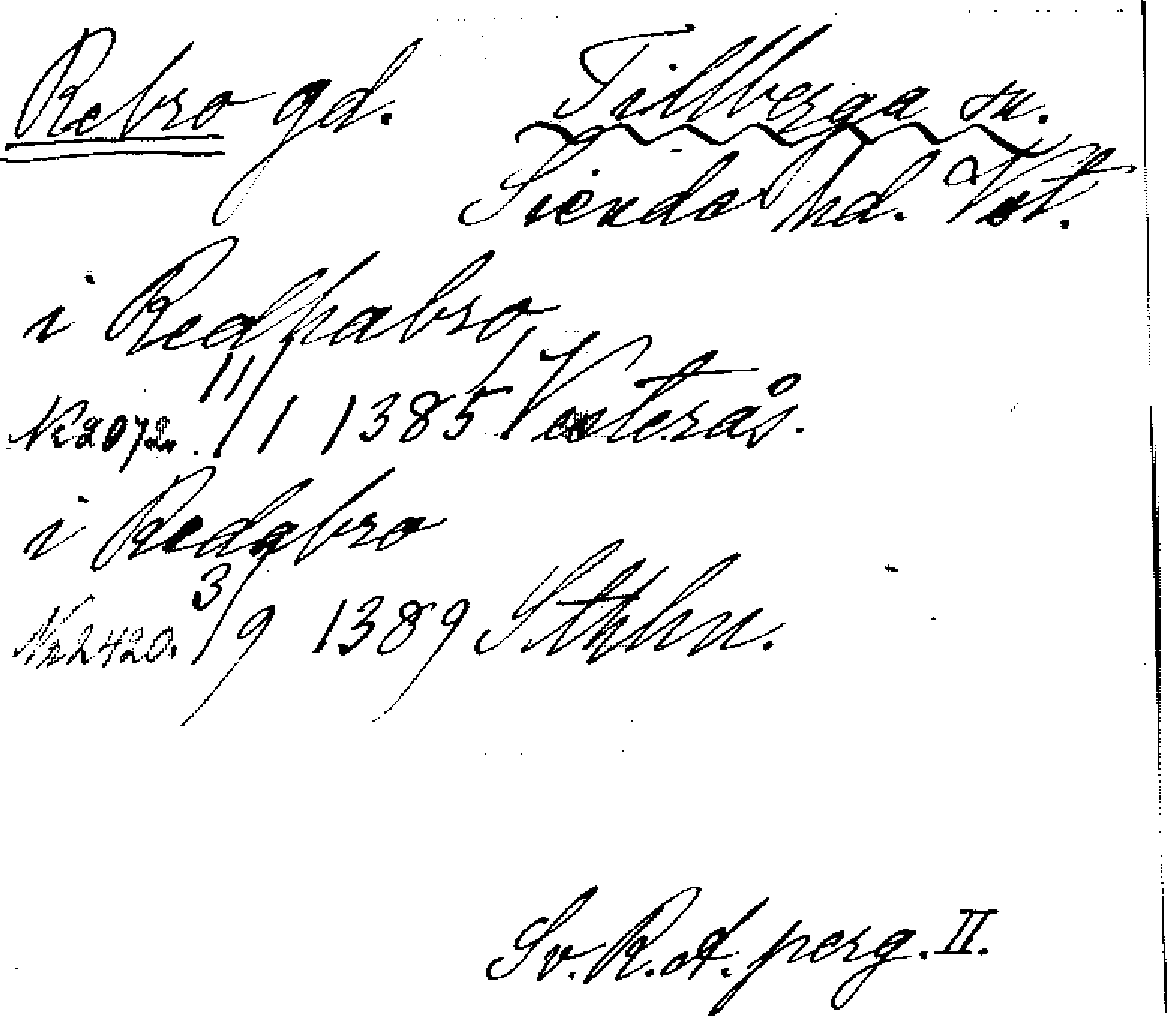 Rebro gd. Tillberga sn.
Siende hd. Vst.
i Redhabro
Nr 2072. 11/1 1385 Vesterås.
i Redabro
Nr 2420. 3/9 1389 Sthlm.
Sv. R. A. perg. II.